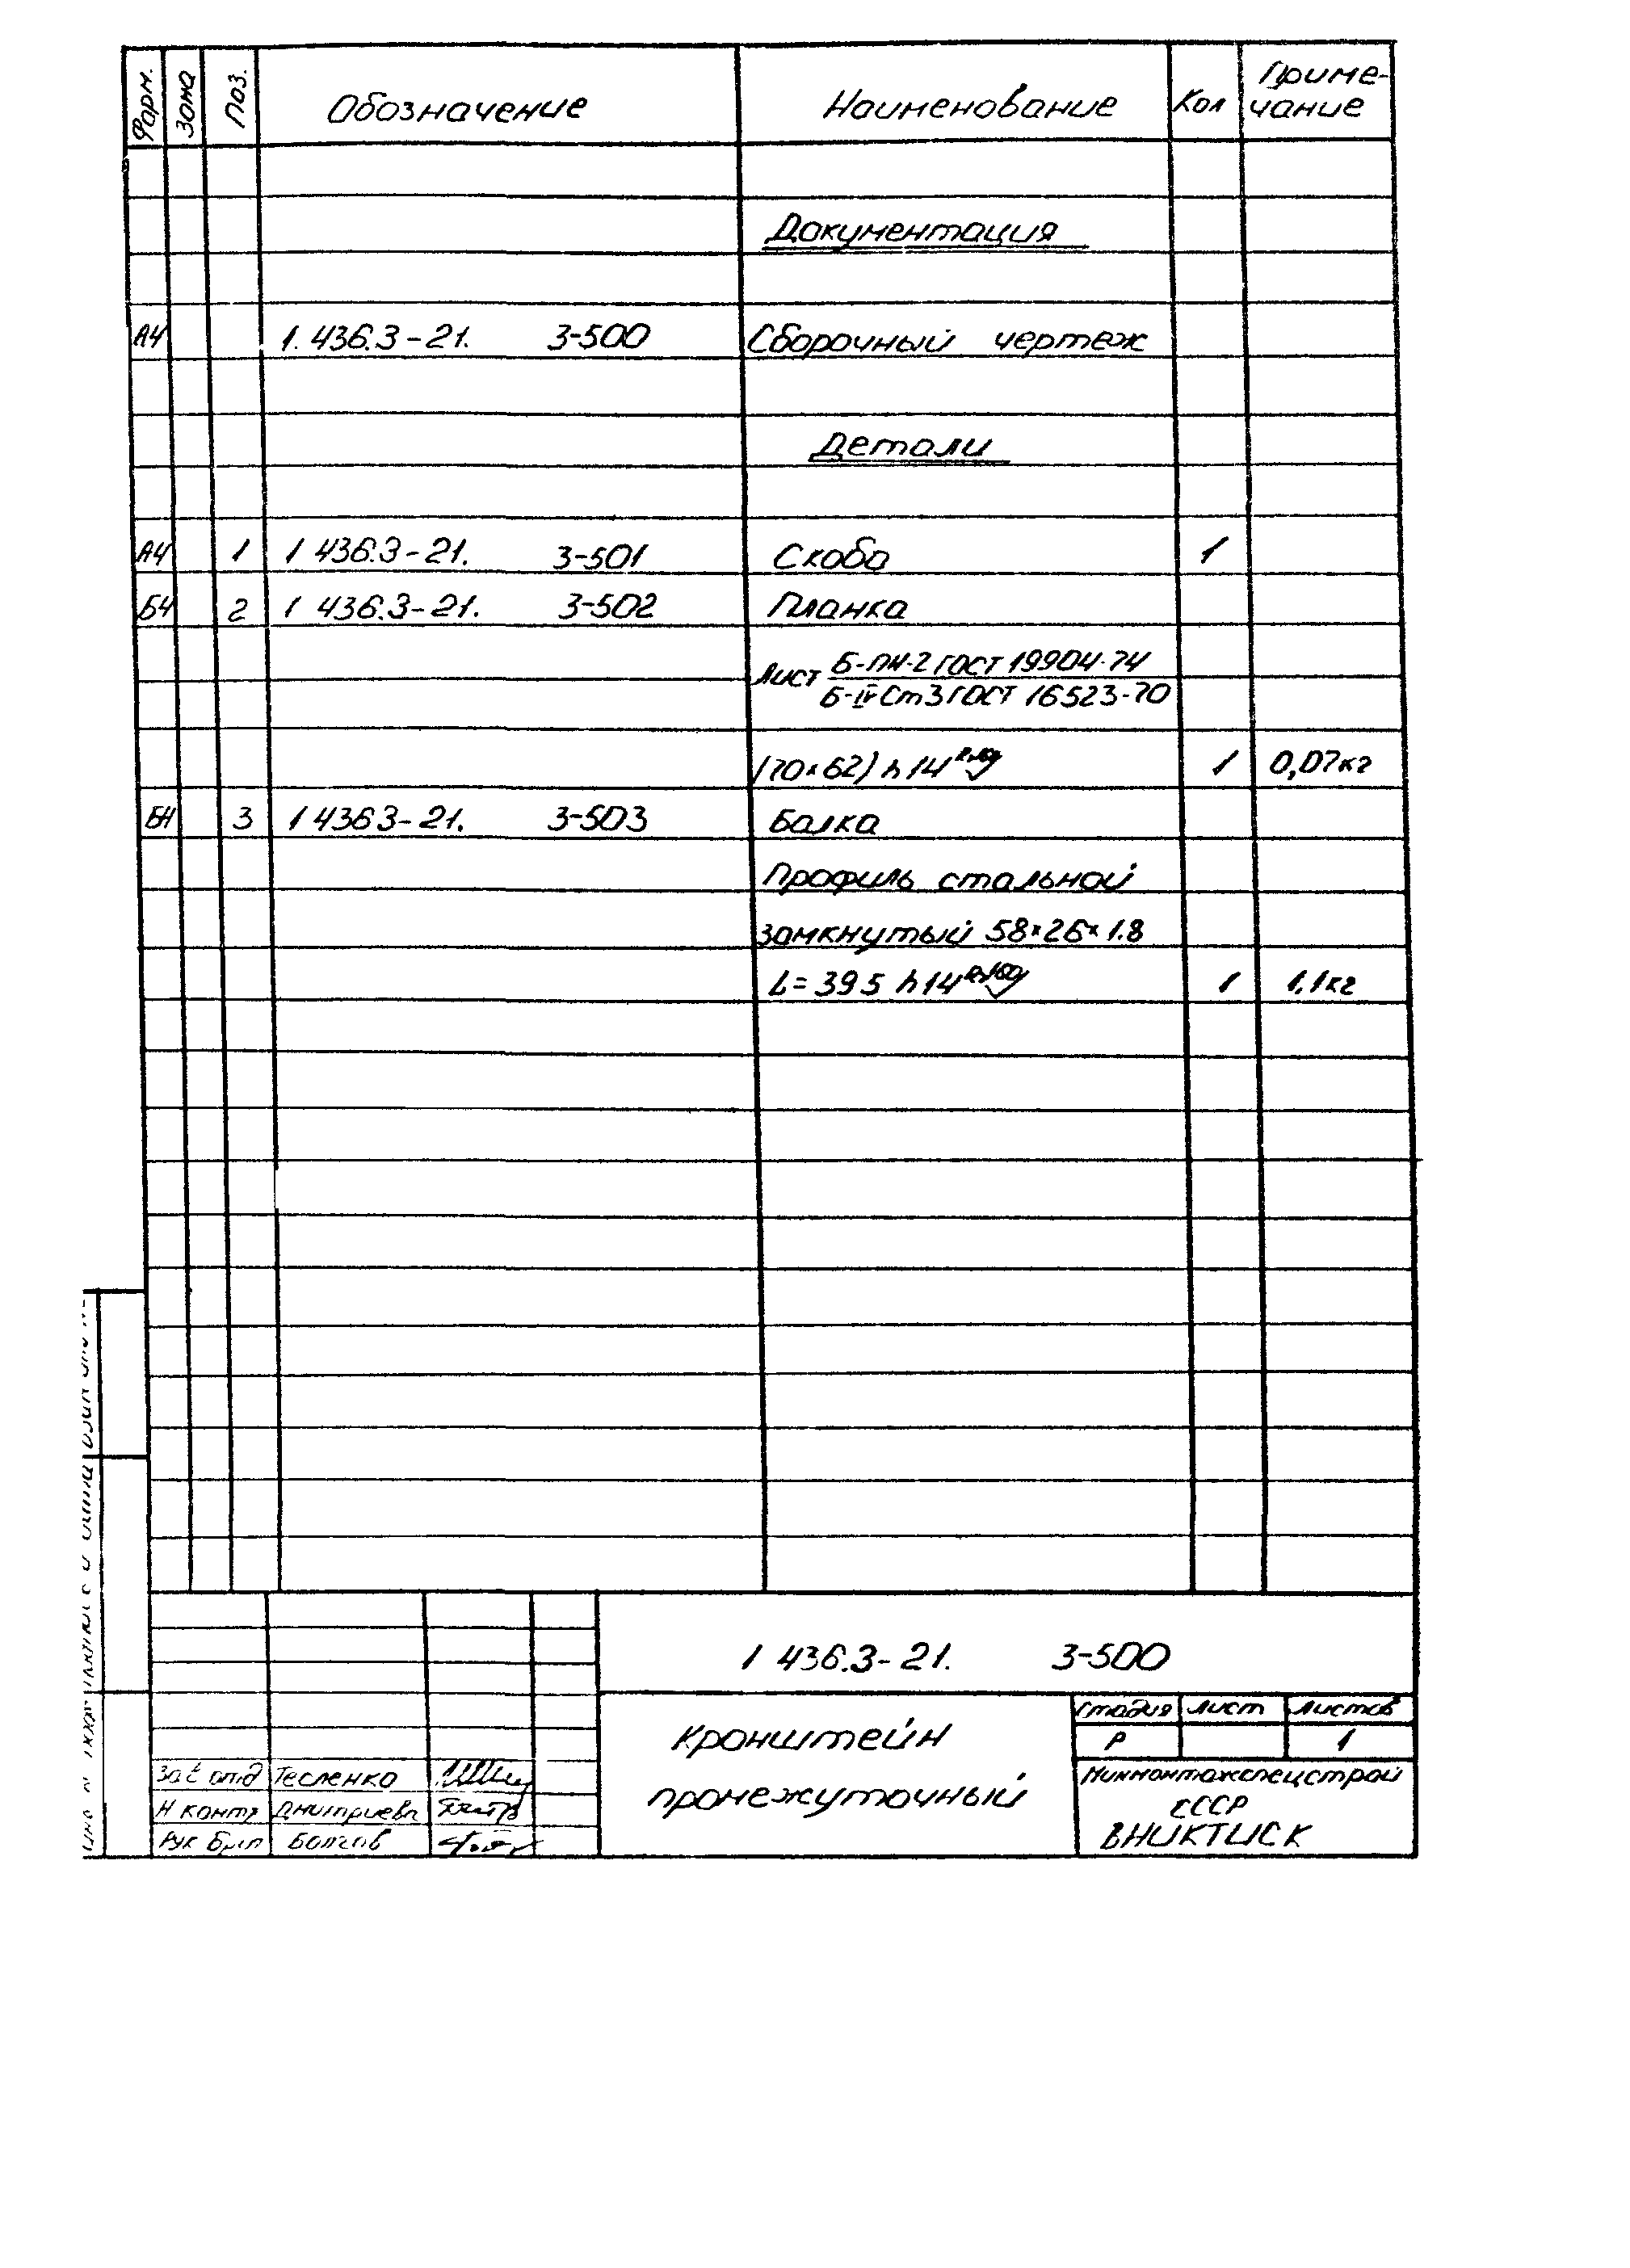 Форм.
Зона
Поз.
Обозначение
Наименование
Кол
Приме-
чание
Документация
А4 1. 436.3-21. 3-500 Сборочный чертеж
Детали
А4 1 1 436.3-21. 3-501 Скоба 1
Б4 2 1 436.3-21. 3-502 Планка
Лист Б-ПН-2 ГОСТ 19904-74
Б-IV Ст3 ГОСТ 16523-70
(70×62) h14 1 0,07кг
БЧ 3 1 436 3-21. 3-503 Балка
Профиль стальной
замкнутый 58×26×1.8
L=395 h14 1 1.1кг
1 436.3-21. 3-500
Кронштейн
промежуточный
Стадия Лист Листов
Р 1
Минмонтажспецстрой
СССР
ВНИКТИСК
Тесленко
Н контр Дмитриева
Рук